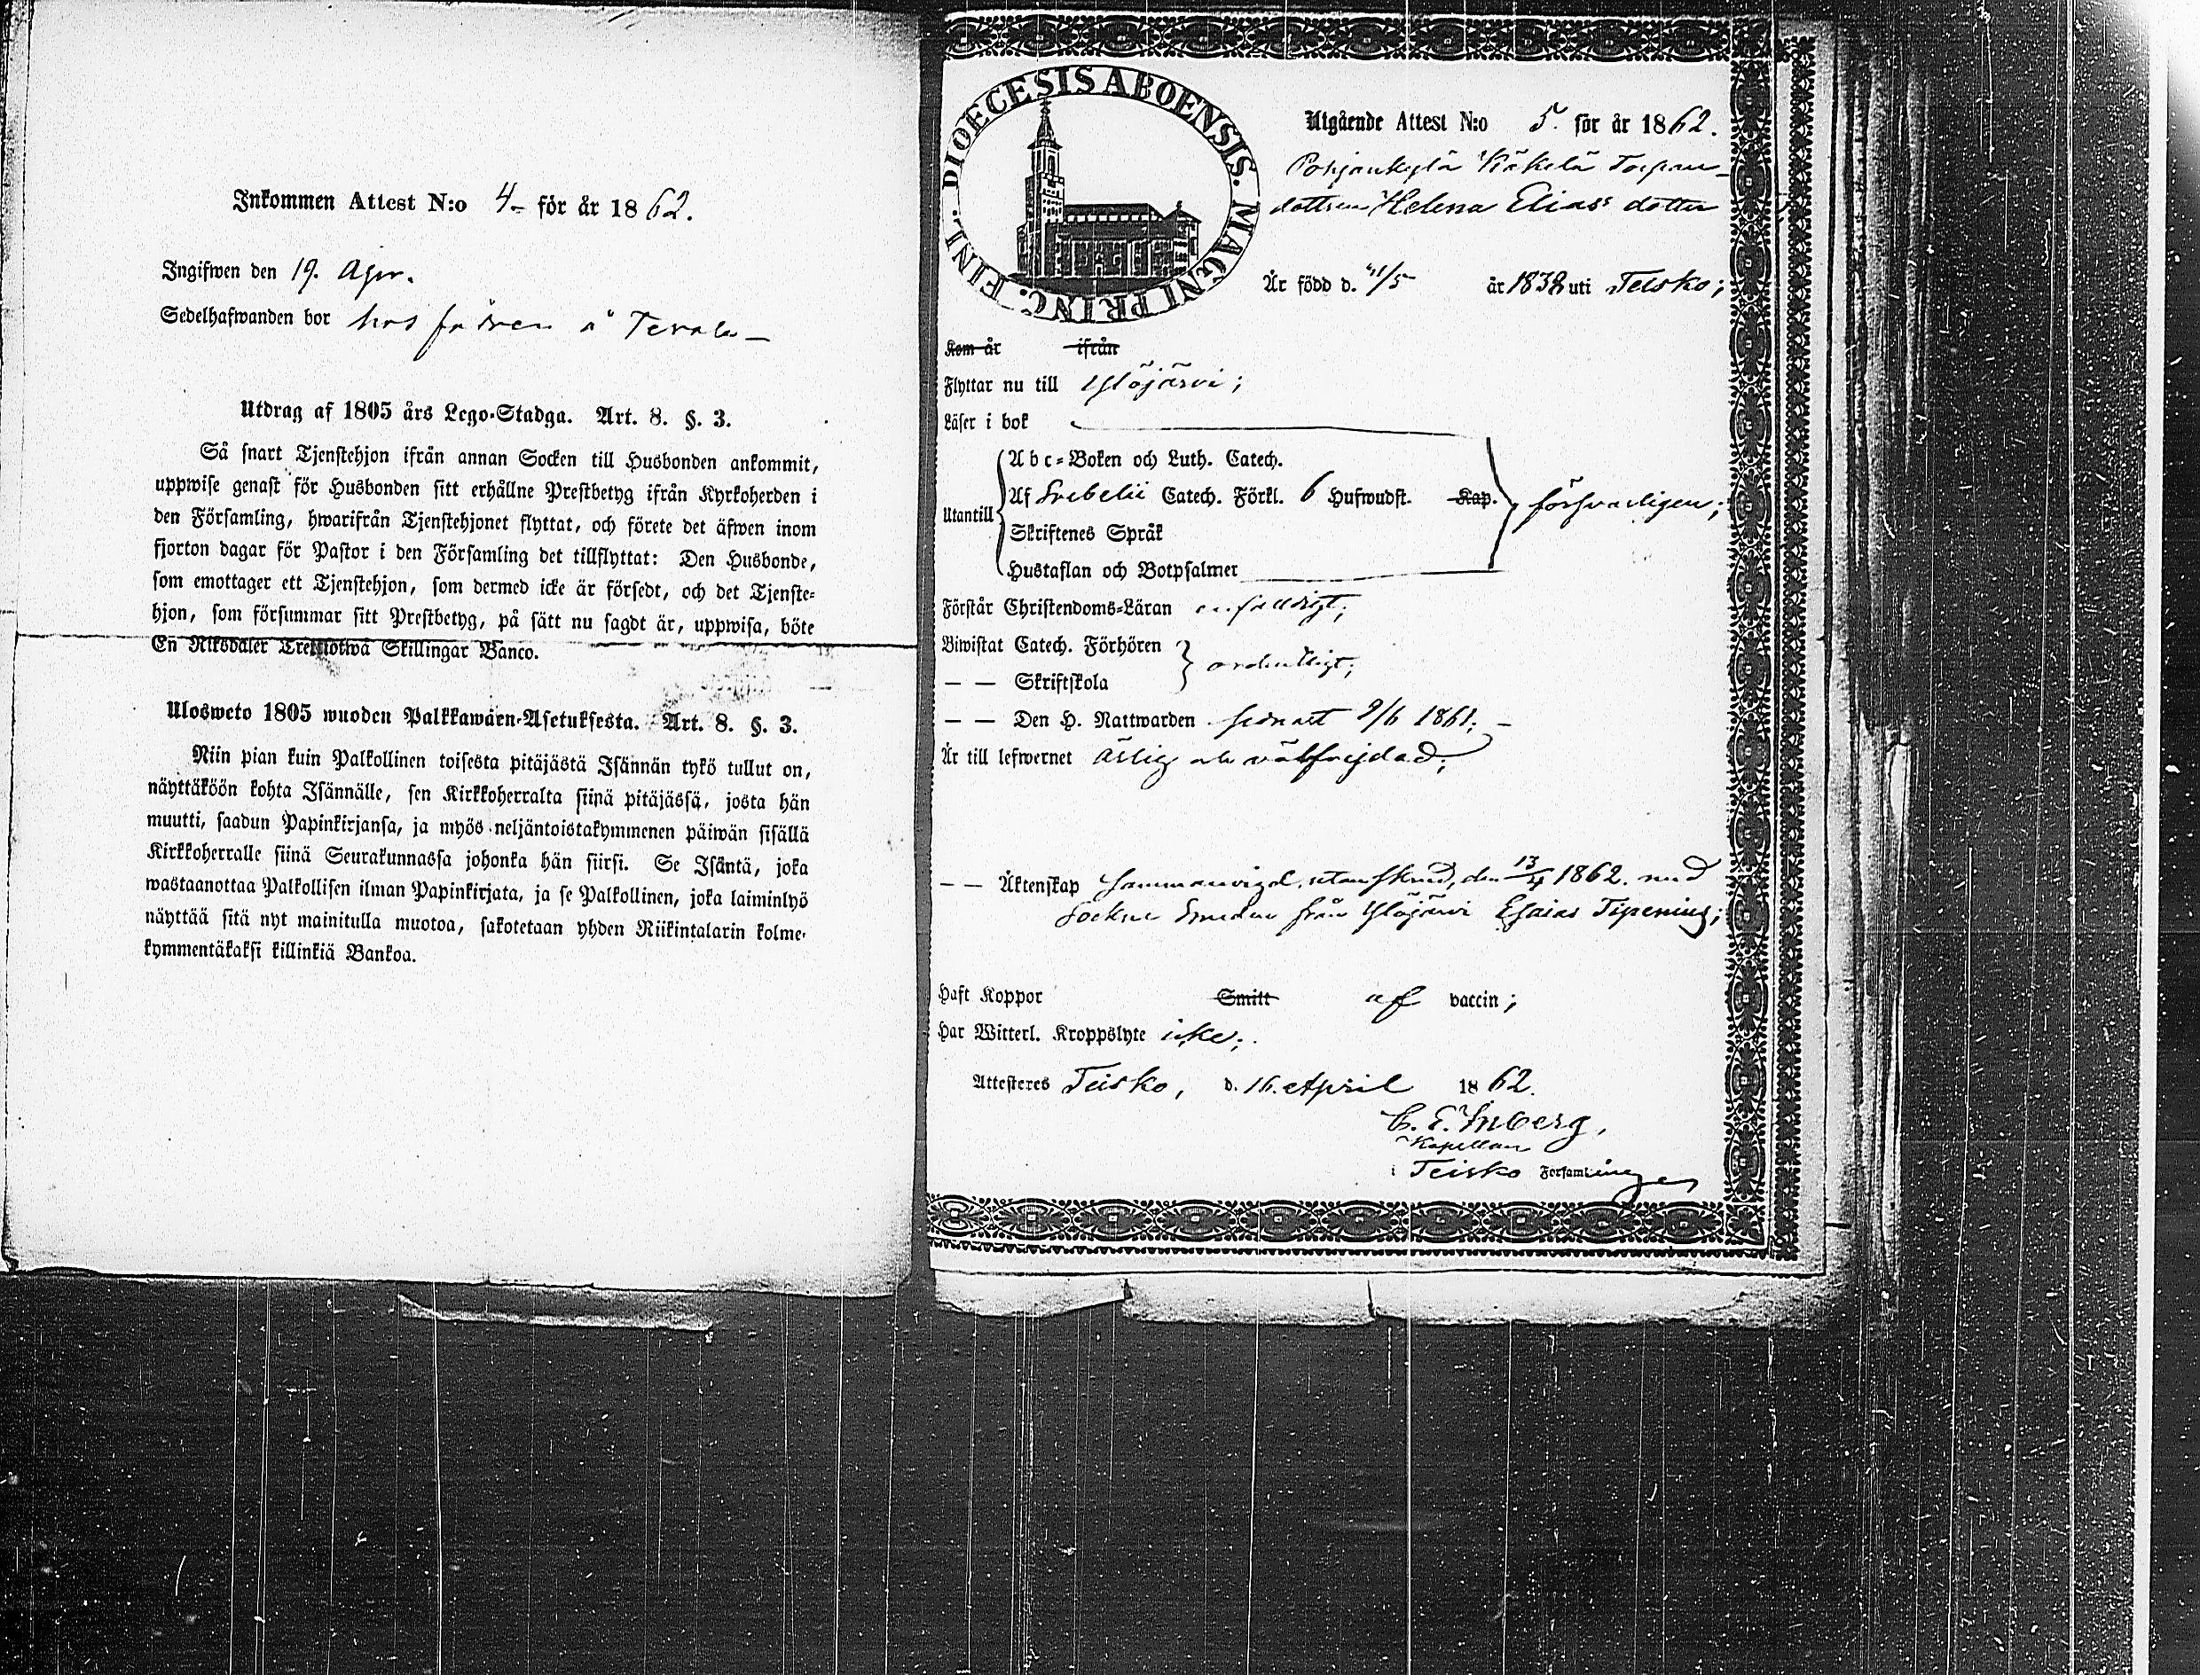 Inkommen Attest N:o 4 för år 1862.
Ingifwen den 19. Apr.
Sedelhafwanden bor hos fadren å
Utdrag af 1805 års Lego-Stadga. Art. 8. §. 3.
Så snart Tjenstehjon ifrån annan Socken till Husbonden ankommit,
uppwise genast för Husbonden sitt erhållne Prestbetyg ifrån Kyrkoherden i
den Församling, hwarifrån Tjenstehjonet flyttat, och förete det äfwen inom
fjorton dagar för Pastor i den Församling det tillflyttat: Den Husbonde,
som emottager ett Tjenstehjon, som dermed icke är försedt, och det Tjenste-
hjon, som försummar sitt Prestbetyg, på sätt nu sagdt är, uppwisa, böte
En Riksdaler Trettiotwå Skillingar Banco.
Ulosweto 1805 wuoden Palkkawäen-Asetuksesta. Art. 8. §. 3.
Niin pian kuin Palkollinen toisesta pitäjästä Isännän tykö tullut on,
näyttäköön kohta Isännälle, sen Kirkkoherralta siinä pitäjässä, josta hän
muutti, saadun Papinkirjansa, ja myös neljäntoistakymmenen päiwän sisällä
Kirkkoherralle siinä Seurakunnassa johonka hän siirsi. Se Isäntä, joka
wastaanottaa Palkollisen ilman Papinkirjata, ja se Palkollinen, joka laiminlyö
näyttää sitä nyt mainitulla muotoa, sakotetaan yhden Riikintalarin kolme-
kymmentäkaksi killinkiä Bankoa.
DIOECESIS ABOENSIS. MAGNI PRINC. FINL.
Utgående Attest N:o 5. för år 1862.
Pohjankylä Käkelä Torpare-
dottren Helena Elias dotter
Är född d. /5 år 1838 uti Teisko;
Kom år ifrån
Flyttar nu till Ylöjärvi;
Läser i bok
Utantill
Abc-Boken och Luth. Catech.
Af Svebelii Catech. Förkl. 6 Hufwudst. Kap. försvarligen;
Skriftenes Språk
Hustaflan och Botpsalmer
Förstår Christendoms-Läran enfaldigt;
Biwistat Catech. Förhören ordentligt;
— — Skriftskola
— — Den H. Nattwarden sednast 9/6 1861;
Är till lefwernet ärlig och välfrejdad;
— — Äktenskap Sammanvigd, utom Skrud, den 13/4 1862. med
Sockne Smeden från Ylöjärvi Esaias Tipenius;
Haft Koppor Smitt af vaccin;
Har Witterl. Kroppslyte icke;
Attesteres Teisko, d. 16. April 1862.
C. E. Inberg,
Kapellan
i Teisko Församlingen